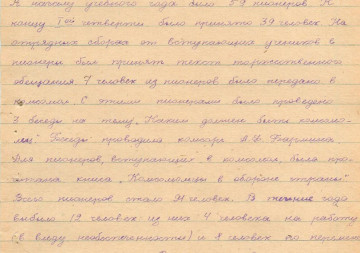 К началу учебного года было 59 пионеров. К
концу I ой четверти было принято 39 человек. На
отрядных сборах от вступающих учеников в
пионеры был принят текст торжественного
обещания. 7 человек из пионеров было передано в
комсомол. С этими пионерами было проведено
3 беседы на тему „Каким должен быть комсомо-
лец" Беседы проводила комсорг А.
Для пионеров, вступающих в комсомол, была про-
читана книга „Комсомольцы в обороне страны"
Всего пионеров стало 91 человек. В течение года
выбыло 12 человек из них 4 человека на работу
(в виду необеспеченности) и 8 человек по